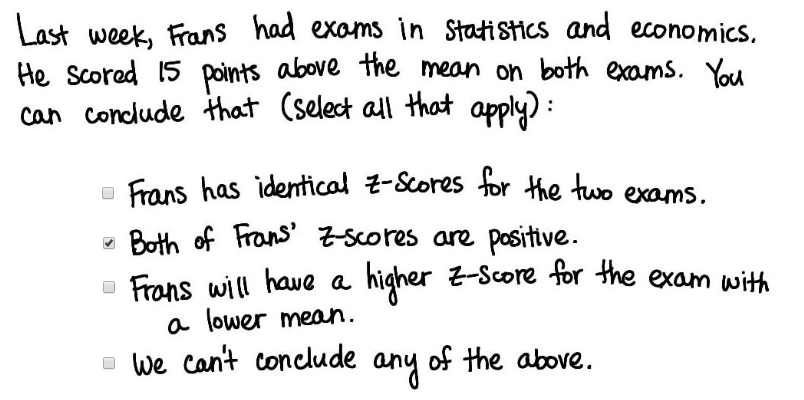 Last week, Frans had exams in Statistics and economics.
He scored 15 points above the mean on both exams. You
can conclude that (select all that apply):
Frans has identical z-scores for the two exams.
Both of Frans' z-scores are positive.
Frans will have a higher z-score for the exam with
a lower mean.
We can't conclude any of the above.